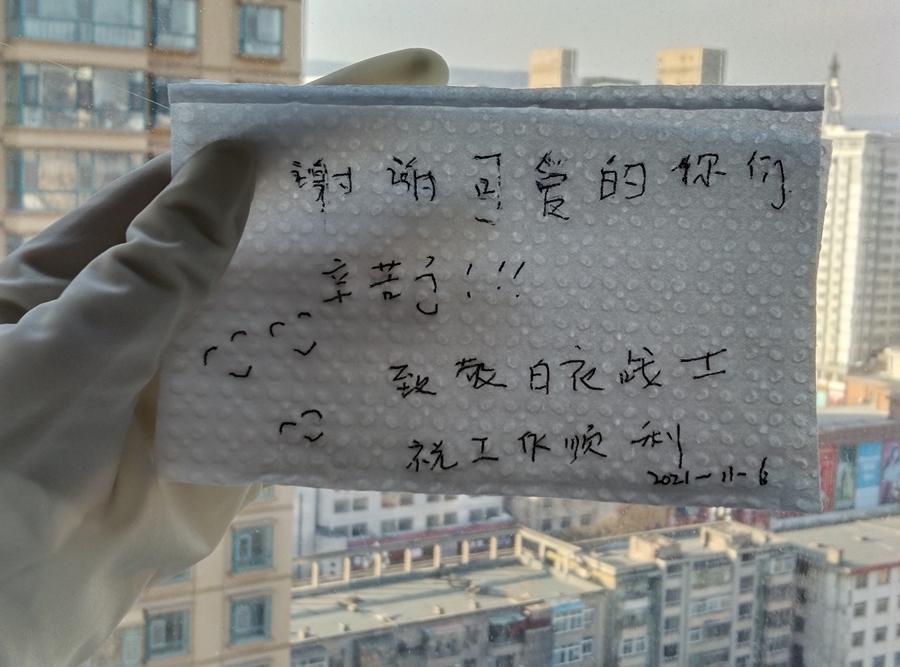 谢谢可爱的你们
辛苦了!!!
致敬白衣战士
祝工作顺利
2021-11-6